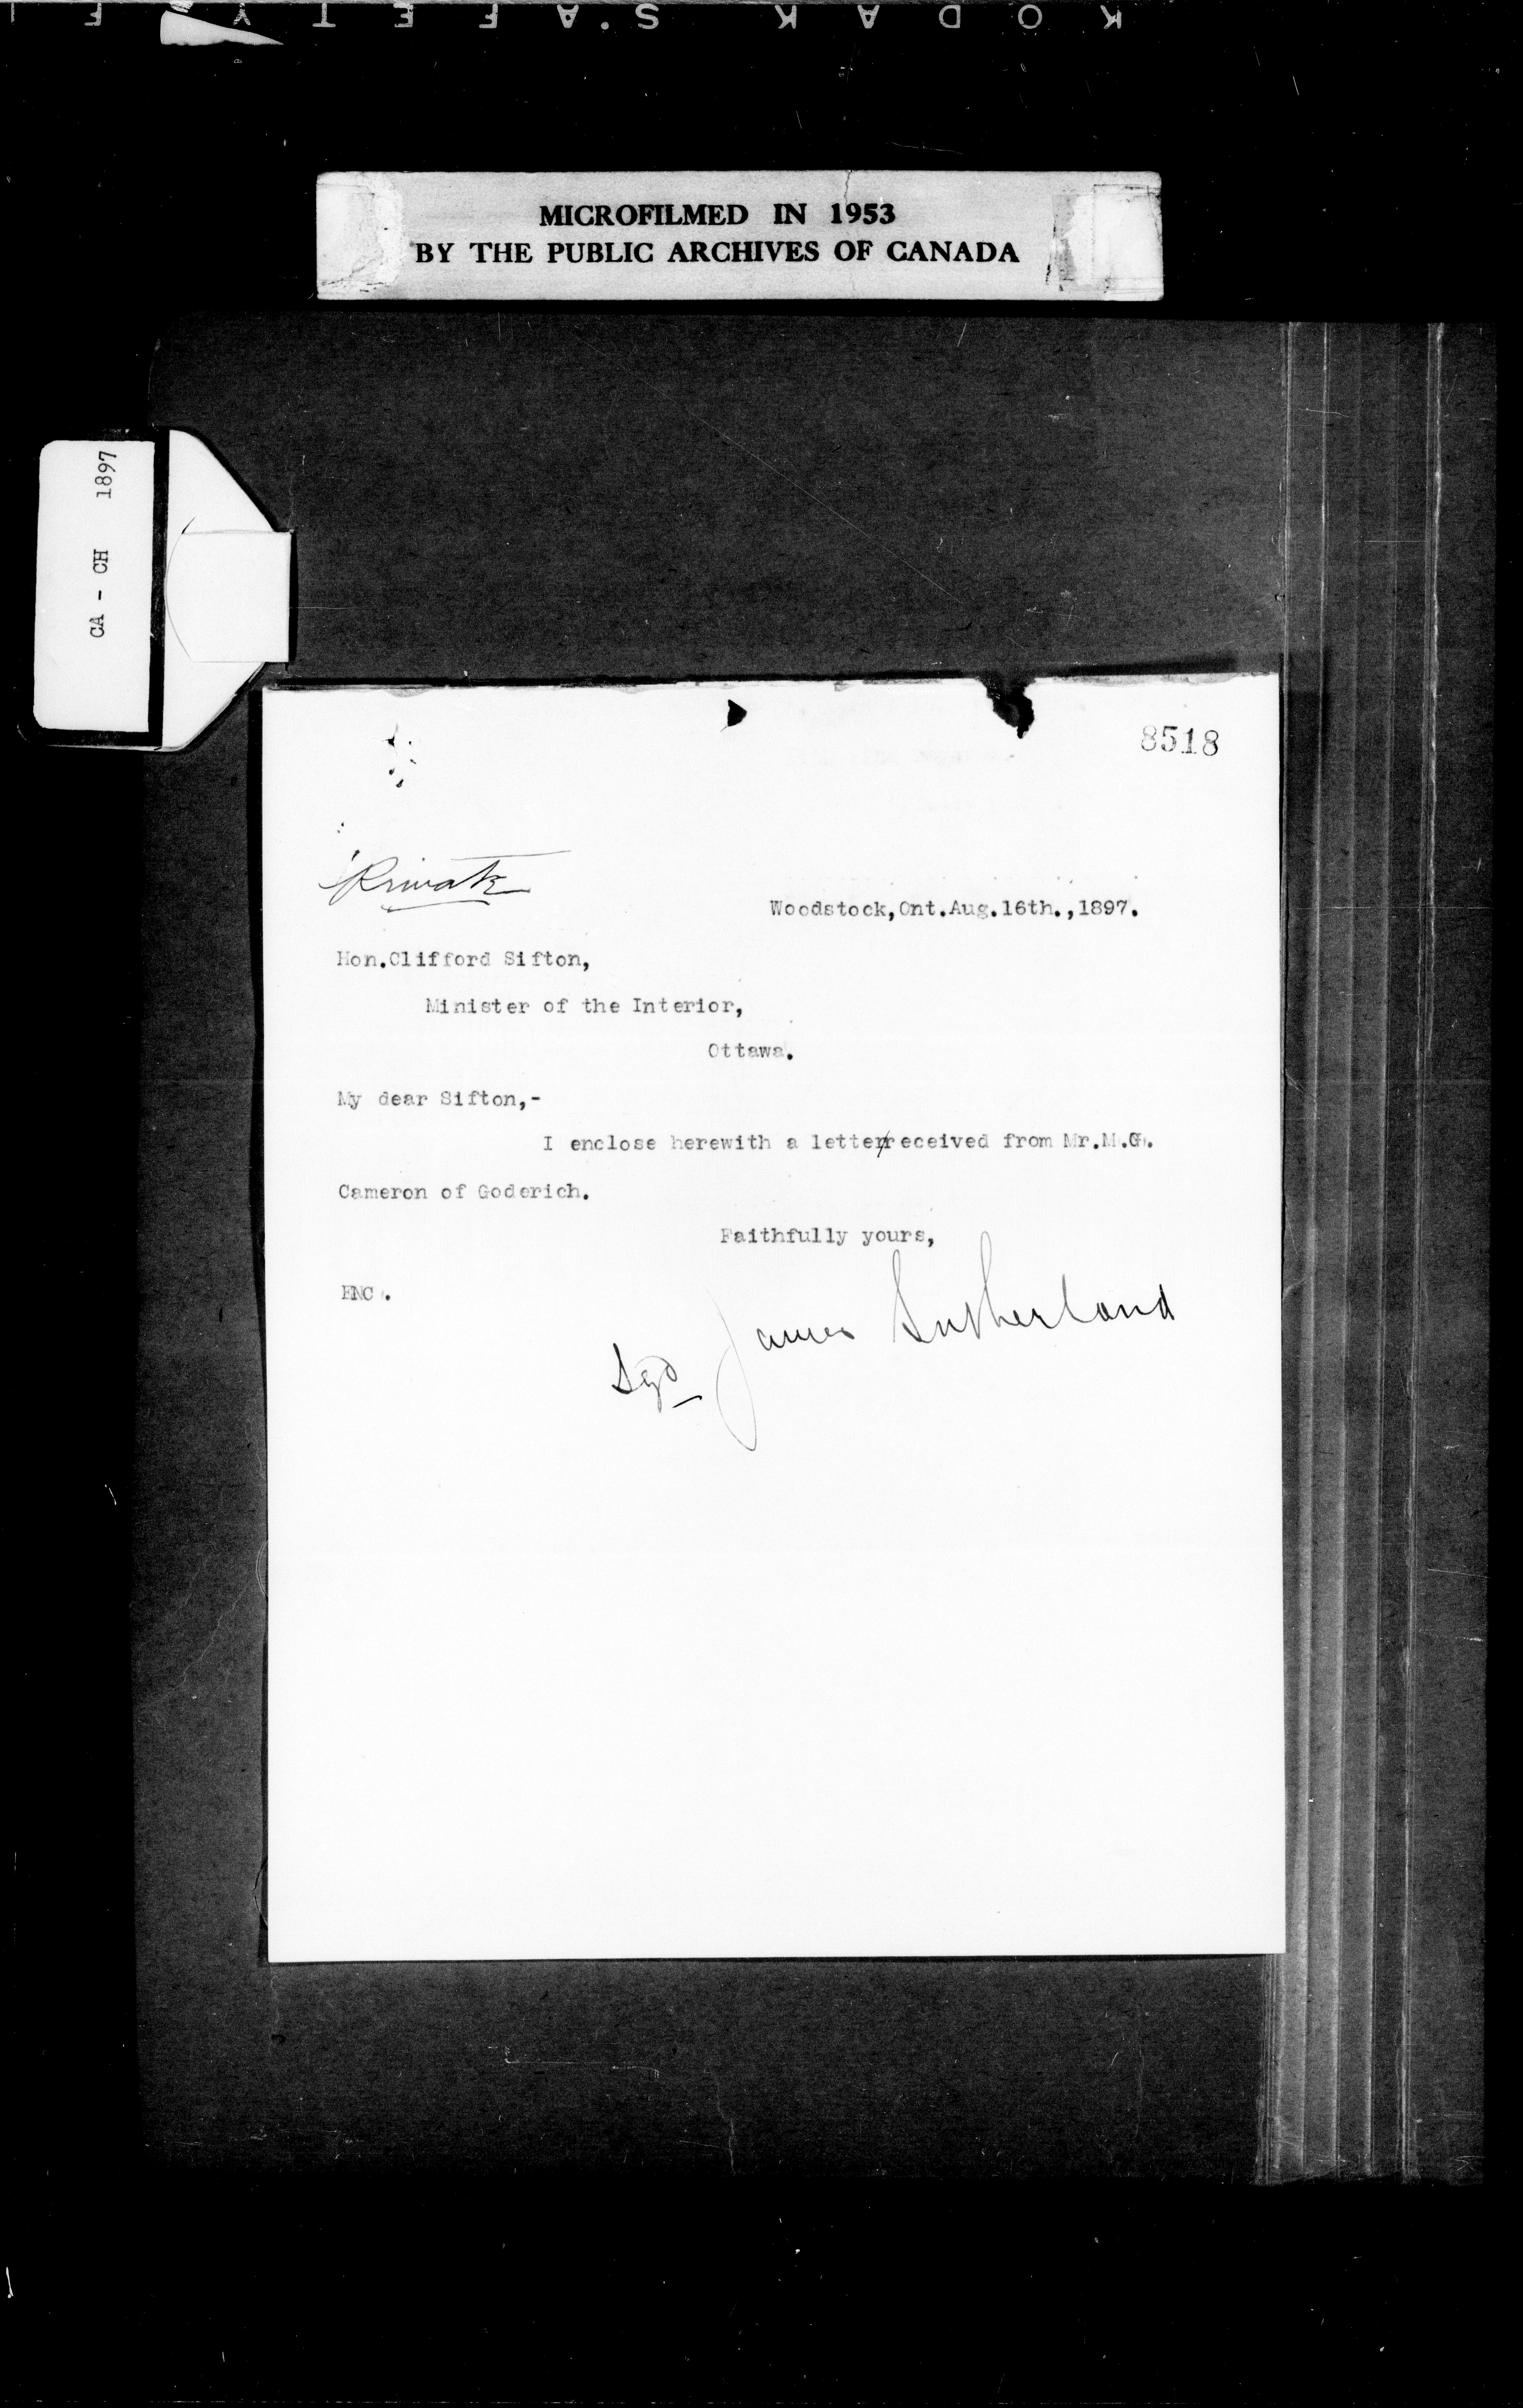 KODAK S.A.F.E.T.Y. F
MICROFILMED IN 1953
BY THE PUBLIC ARCHIVES OF CANADA
CA - CH 1897
8518
Private
Woodstock,Ont.Aug.16th.,1897.
Hon.Clifford Sifton,
Minister of the Interior,
Ottawa.
My dear Sifton,-
I enclose herewith a letter/received from Mr.M.G.
Cameron of Goderich.
Faithfully yours,
ENC.
Sgd James Sutherland